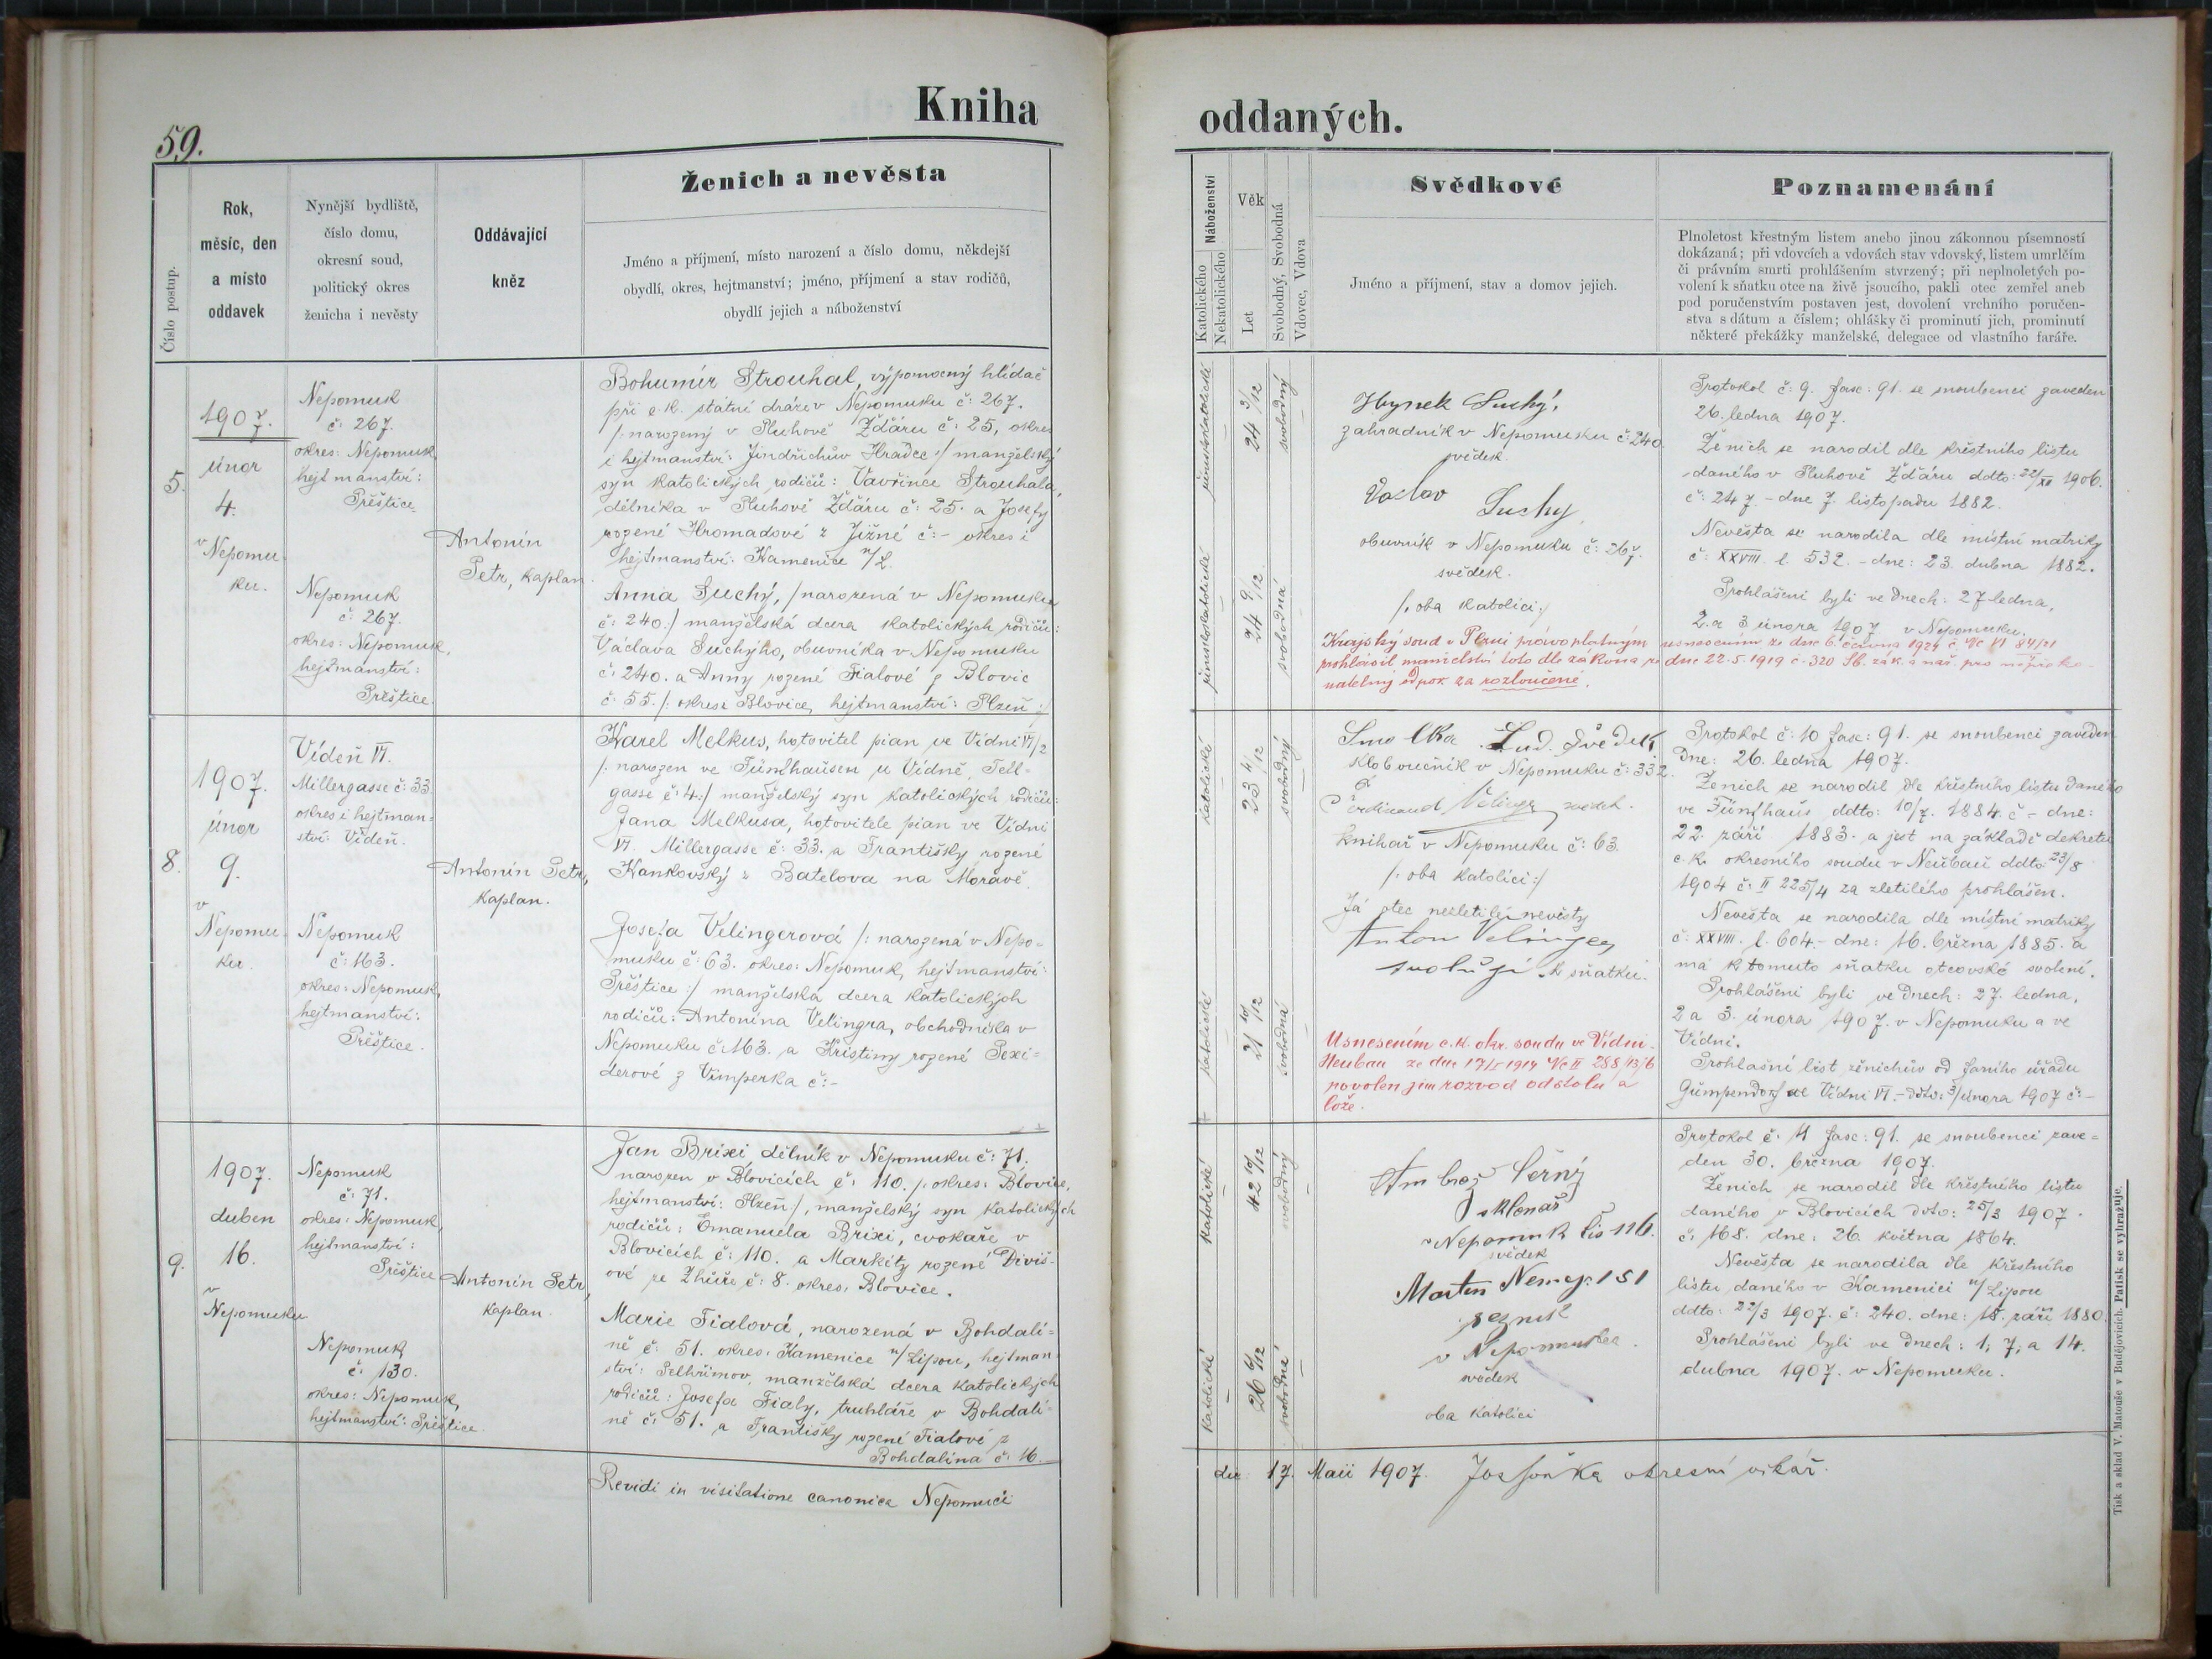 59.
Kniha
Číslo postup.
Rok,
měsíc, den
a místo
oddavek
Nynější bydliště,
číslo domu,
okresní soud,
politický okres
ženicha i nevěsty
Oddávající
kněz
Ženich a nevěsta
Jméno a příjmení, místo narození a číslo domu, někdejší
obydlí, okres, hejtmanství; jméno, příjmení a stav rodičů,
obydlí jejich a náboženství
5.
1907.
únor
4.
v Nepomu-
ku.
Nepomuk
č: 267.
okres: Nepomuk,
hejtmanství:
Přeštice.
Nepomuk
č: 267.
okres: Nepomuk,
hejtmanství:
Přeštice.
Antonín
Petr, kaplan.
Bohumír Strouhal, výpomocný hlídač
při c.k. státní dráze v Nepomuku č: 267.
/: narozený v Pluhově Žďáru č: 25, okres
i hejtmanství: Jindřichův Hradec :/ manželský
syn katolických rodičů: Vavřince Strouhala,
dělníka v Pluhově Žďáru č: 25. a Josefy
rozené Hromadové z Jižné č: - okres i
hejtmanství: Kamenice n/L.
Anna Suchý, /narozená v Nepomuku
č: 240:/ manželská dcera katolických rodičů:
Václava Suchýho, obuvníka v Nepomuku
č: 240. a Anny rozené Fialové z Blovic
č: 55. /: okres: Blovice, hejtmanství: Plzeň :/
8.
1907.
únor
9.
v
Nepomu-
ku.
Vídeň VI.
Millergasse č: 33.
okres i hejtman-
ství: Vídeň.
Nepomuk
č: 163.
okres: Nepomuk,
hejtmanství:
Přeštice.
Antonín Petr,
kaplan.
Karel Melkus, hotovitel pian ve Vídni VI/2
/: narozen ve Fünfhausen u Vídně, Tell-
gasse č: 4:/ manželský syn katolických rodičů:
Jana Melkusa, hotovitele pian ve Vídni
VI. Millergasse č: 33. a Františky rozené
Kankovský z Batelova na Moravě.
Josefa Velingerová /: narozená v Nepo-
muku č: 63. okres: Nepomuk, hejtmanství:
Přeštice :/ manželská dcera katolických
rodičů: Antonína Velingra, obchodníka v
Nepomuku č: 163. a Kristiny rozené Pexi-
derové z Vimperka č:-
9.
1907.
duben
16.
v
Nepomuku
Nepomuk
č: 71.
okres: Nepomuk,
hejtmanství:
Přeštice
Nepomuk
č: 130.
okres: Nepomuk,
hejtmanství: Přeštice.
Antonín Petr,
kaplan.
Jan Brixi dělník v Nepomuku č: 71.
narozen v Blovicích č: 110. /: okres: Blovice,
hejtmanství: Plzeň:/, manželský syn katolických
rodičů: Emanuela Brixi, cvokaře v
Blovicích č: 110. a Markéty rozené Diviš-
ové ze Zhůře č: 8. okres: Blovice.
Marie Fialová, narozená v Bohdalí-
ně č: 51. okres: Kamenice n/Lipou, hejtman-
ství: Pelhřimov, manželská dcera katolických
rodičů: Josefa Fialy, truhláře v Bohdalí-
ně č: 51. a Františky rozené Fialové z
Bohdalína č: 16.
Revidi in visitatione canonica Nepomuci
oddaných.
Náboženství
Katolického
Nekatolického
Věk
Let
Svobodný, Svobodná
Vdovec, Vdova
Svědkové
Jméno a příjmení, stav a domov jejich.
Poznamenání
Plnoletost křestným listem anebo jinou zákonnou písemností
dokázaná; při vdovcích a vdovách stav vdovský, listem umrlčím
či právním smrti prohlášením stvrzený; při neplnoletých po-
volení k sňatku otce na živě jsoucího, pakli otec zemřel aneb
pod poručenstvím postaven jest, dovolení vrchního poručen-
stva s dátum a číslem; ohlášky či prominutí jich, prominutí
některé překážky manželské, delegace od vlastního faráře.
římskokatolické
24 3/12
svobodný
římskokatolické
24 9/12
svobodná
Hynek Suchý,
zahradník v Nepomuku č: 240.
svědek.
Vaclav Suchy
obuvník v Nepomuku č: 267.
svědek.
/: oba katolíci :/
Protokol č: 9. fasc: 91. se snoubenci zaveden
26. ledna 1907.
Ženich se narodil dle křestního listu
daného v Pluhově Žďáru ddto: 22/XII 1906.
č: 247. - dne 7. listopadu 1882.
Nevěsta se narodila dle místní matriky
č: XXVIII. l. 532. - dne: 23. dubna 1882.
Prohlášeni byli ve dnech: 27 ledna,
2. a 3 února 1907 v Nepomuku.
Krajský soud v Plzni právoplatným usnesením ze dne 6. června 1924 č. Nc VI 84/21
prohlásil manželství toto dle zákona ze dne 22.5.1919 č. 320 Sb. zák. a nař. pro nepřeko-
natelný odpor za rozloučené.
katolické
23 4/12
svobodný
katolické
21 10/12
svobodná
Smolka Lud. svědek
kloboučník v Nepomuku č: 332.
Ferdinand Velingr svědek.
knihař v Nepomuku č: 63.
/: oba katolíci :/
Já otec nezletilé nevěsty
Anton Velinger
svoluji k sňatku.
Usnesením c.k. okr. soudu ve Vídni-
Neubau ze dne 17/I 1914 Nc II 288/13/6
povolen jim rozvod od stolu a
lože.
Protokol č: 10 fasc: 91. se snoubenci zaveden
dne: 26. ledna 1907.
Ženich se narodil dle křestního listu daného
ve Fünfhaus ddto: 10/7. 1884. č - dne:
22. září 1883. a jest na základě dekretu
c.k. okresního soudu v Neubau ddto: 23/8
1904 č: II 225/4 za zletilého prohlášen.
Nevěsta se narodila dle místní matriky
č: XXVIII. l. 604. - dne: 16. března 1885. a
má k tomuto sňatku otcovské svolení.
Prohlášeni byli ve dnech: 27. ledna,
2 a 3. února 1907. v Nepomuku a ve
Vídni.
Prohlašní list ženichův od farního úřadu
Gumpendorf ve Vídni VI. - ddto: 3/února 1907 č:-
katolické
42 10/12
svobodný
katolické
26 6/12
svobodná
Ambrož Černý
sklenář
v Nepomuk čis 116.
svědek
Martin Nemej: 151
řezník
v Nepomuku.
svědek
oba katolíci
Protokol č: 11 fasc: 91. se snoubenci zave-
den 30. března 1907.
Ženich se narodil dle křestního listu
daného v Blovicích ddto: 25/3 1907.
č: 168. dne: 26. května 1864.
Nevěsta se narodila dle křestního
listu daného v Kamenici n/Lipou
ddto: 22/3 1907. č: 240. dne: 18. září 1880.
Prohlášeni byli ve dnech: 1, 7, a 14.
dubna 1907. v Nepomuku.
die 17. Maii 1907. okresní vikář.
Tisk a sklad V. Matouše v Budějovicích. Patisk se vyhražuje.